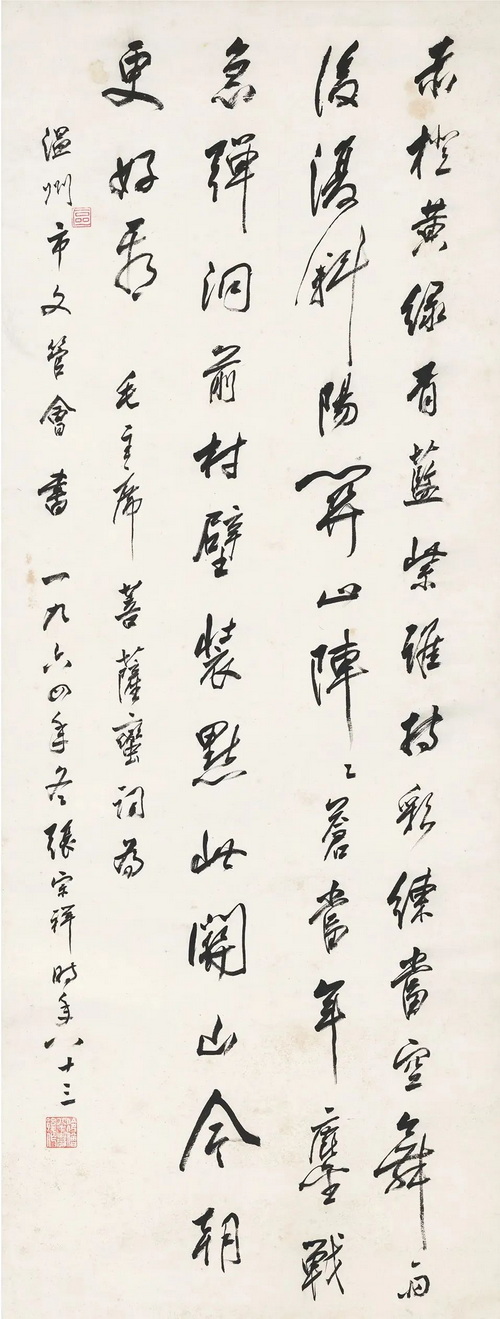 赤橙黃綠青藍紫誰持彩練當空舞雨
後復斜陽關山陣〻蒼當年鏖戰
急彈洞前村壁裝點此關山今朝
更好看 毛主席菩薩蠻詞為
温州市文管會書 一九六四年冬張宗祥時年八十三